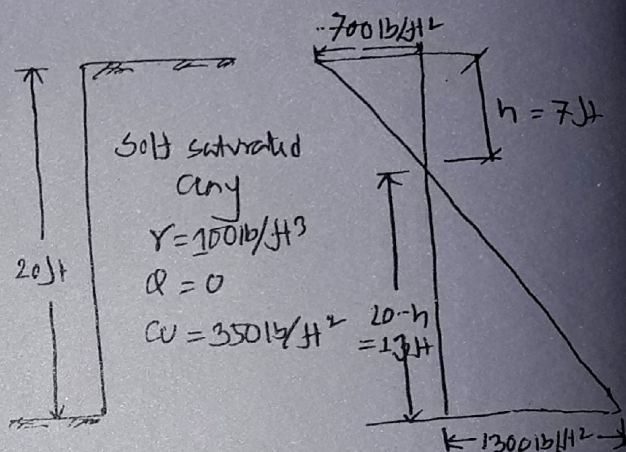 700 lb/ft²
h = 7ft
Soft saturated
clay
γ = 100 lb/ft³
20ft
Q = 0
CU = 350 lb/ft²
20-h
= 13ft
1300 lb/ft²